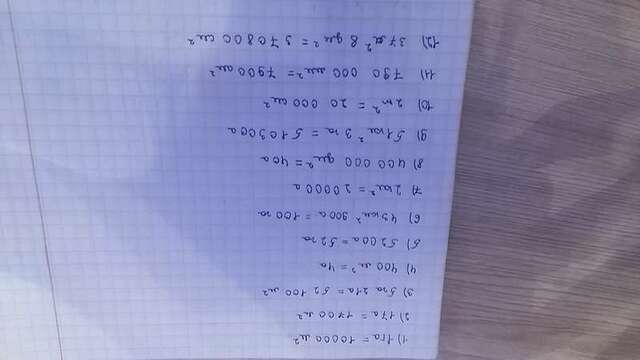 1) 1га = 10000 м²
2) 17а = 1700 м²
3) 5га 21а = 52100 м²
4) 400 м² = 4а
5) 5200а = 52га
6) 43км² 300а = 100га
7) 2км² = 20000а
8) 400 000 дм² = 40а
9) 51км² 3га = 510300а
10) 2м² = 20 000 см²
11) 790 000 мм² = 7900 см²
12) 37м² 8дм² = 370800 см²